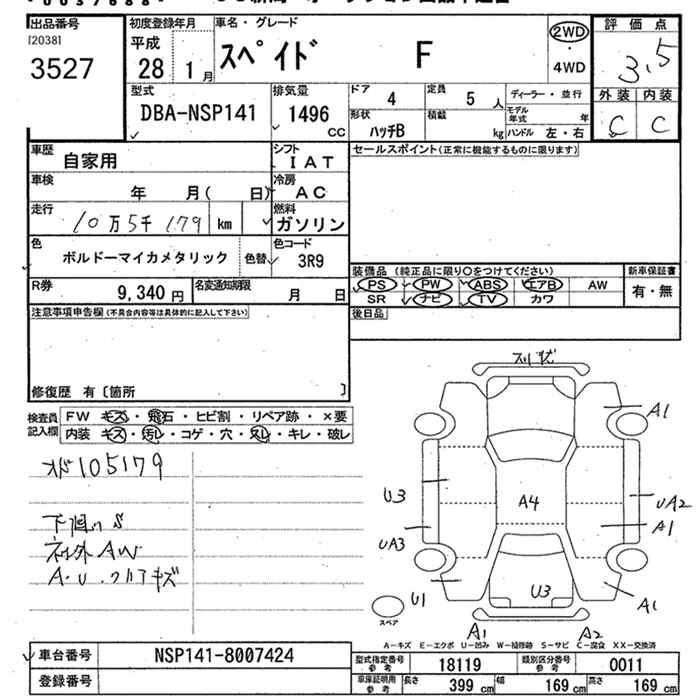 出品番号
[2038]
3527
初度登録年月
平成
28 1月
車名・グレード
スペイド F
2WD
・
4WD
評価点
3.5
外装 内装
C C
型式
DBA-NSP141
排気量
1496
CC
ドア
4
定員
5 人
形状
ハッチB
積載
kg
ディーラー・並行
モデル年式 年
ハンドル 左・右
車歴
自家用
シフト
IAT
セールスポイント(正常に機能するものに限ります)
車検
年 月( 日)
冷房
AC
走行
10万5千179 km
燃料
ガソリン
色
ボルドーマイカメタリック
色替
色コード
3R9
R券
9,340 円
名変通知期限
月 日
装備品 (純正品に限り○をつけてください)
PS PW ABS エアB AW
SR ナビ TV カワ
新車保証書
有・無
後日品
注意事項申告欄(不具合内容等は具体的に記入して下さい)
修復歴 有〔箇所 〕
検査員記入欄
FW キズ・飛石・ヒビ割・リペア跡・×要
内装 キズ・汚レ・コゲ・穴・スレ・キレ・破レ
オド105179
下廻りS
社外AW
A・U・クリアキズ
スリキズ
A1
U3
A4
UA2
A1
UA3
U1
U3
A1
A1
A2
スペア
A-キズ E-エクボ U-凹み W-補修跡 S-サビ C-腐食 XX-交換済
車台番号
NSP141-8007424
登録番号
型式指定番号
参考
18119
類別区分番号
参考
0011
車庫証明用
参考
長さ
399 cm
幅
169 cm
高さ
169 cm